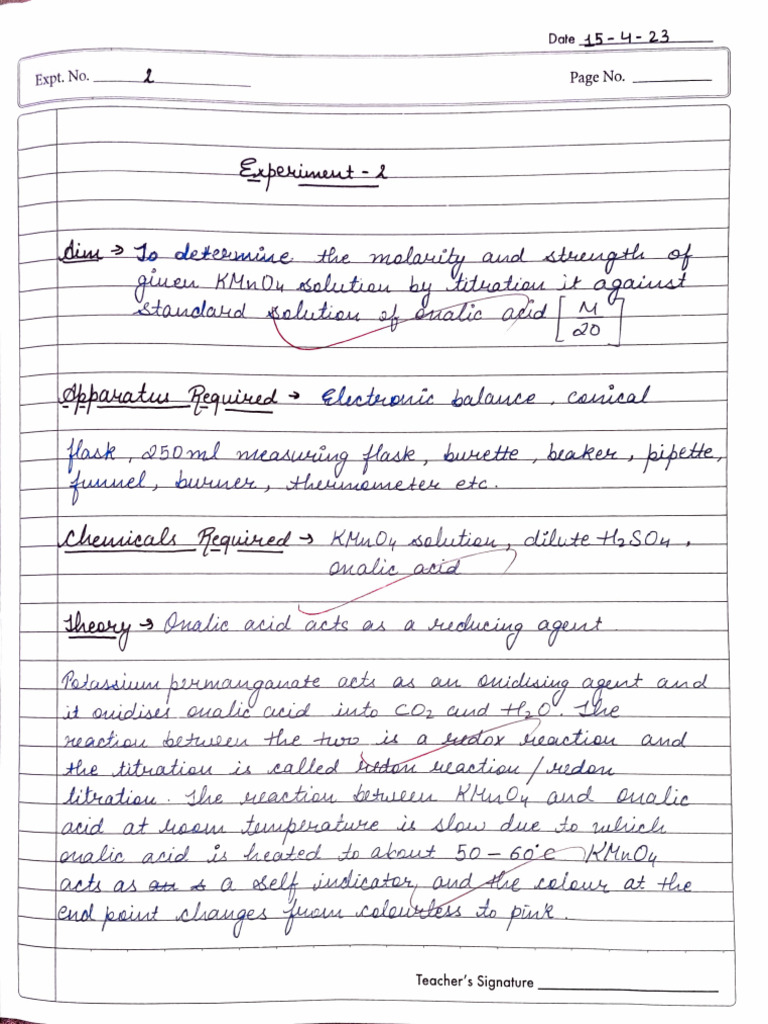 Date 15-4-23
Expt. No. 2
Page No.
Experiment-2
Aim → To determine the molarity and strength of
given KMnO4 solution by titration it against
standard solution of oxalic acid [M/20]
Apparatus Required → Electronic balance, conical
flask, 250ml measuring flask, burette, beaker, pipette,
funnel, burner, thermometer etc.
Chemicals Required → KMnO4 solution, dilute H2SO4,
oxalic acid
Theory → Oxalic acid acts as a reducing agent.
Potassium permanganate acts as an oxidising agent and
it oxidises oxalic acid into CO2 and H2O. The
reaction between the two is a redox reaction and
the titration is called redox reaction/redox
titration. The reaction between KMnO4 and oxalic
acid at room temperature is slow due to which
oxalic acid is heated to about 50-60°C KMnO4
acts as a self indicator, and the colour at the
end point changes from colourless to pink.
Teacher's Signature